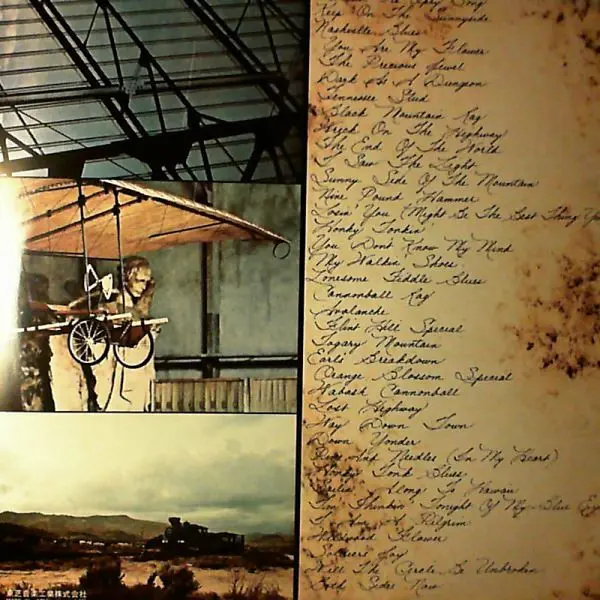 Keep On The Sunnyside
Nashville Blues
You Are My Flower
The Precious Jewel
Dark As A Dungeon
Tennessee Stud
Black Mountain Rag
Wreck On The Highway
The End Of The World
I Saw The Light
Sunny Side Of The Mountain
Nine Pound Hammer
Losin' You (Might Be The Best Thing Yet
Honky Tonkin'
You Don't Know My Mind
My Walkin' Shoes
Lonesome Fiddle Blues
Cannonball Rag
Avalanche
Flint Hill Special
Togary Mountain
Earl's Breakdown
Orange Blossom Special
Wabash Cannonball
Lost Highway
Way Down Town
Down Yonder
Pins And Needles (In My Heart)
Honky Tonk Blues
Sailin' Along To Hawaii
I'm Thinkin' Tonight Of My Blue Eyes
I Am A Pilgrim
Wildwood Flower
Soldier's Joy
Will The Circle Be Unbroken
Both Sides Now
東芝音楽工業株式会社